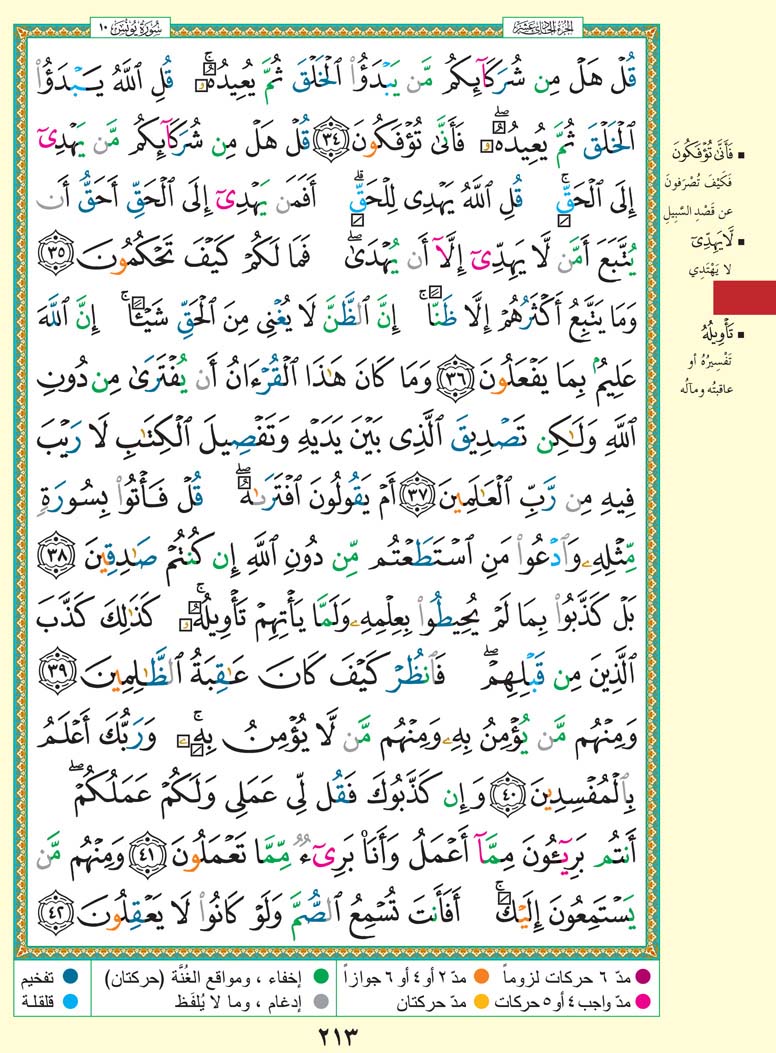 الجزء الحادي عشر
سُورَةُ يُونُسَ ١٠
قُلْ هَلْ مِن شُرَكَآئِكُم مَّن يَبْدَؤُا۟ ٱلْخَلْقَ ثُمَّ يُعِيدُهُۥ ۚ قُلِ ٱللَّهُ يَبْدَؤُا۟
ٱلْخَلْقَ ثُمَّ يُعِيدُهُۥ ۖ فَأَنَّىٰ تُؤْفَكُونَ ٣٤ قُلْ هَلْ مِن شُرَكَآئِكُم مَّن يَهْدِىٓ
إِلَى ٱلْحَقِّ ۚ قُلِ ٱللَّهُ يَهْدِى لِلْحَقِّ ۗ أَفَمَن يَهْدِىٓ إِلَى ٱلْحَقِّ أَحَقُّ أَن
يُتَّبَعَ أَمَّن لَّا يَهِدِّىٓ إِلَّآ أَن يُهْدَىٰ ۖ فَمَا لَكُمْ كَيْفَ تَحْكُمُونَ ٣٥
وَمَا يَتَّبِعُ أَكْثَرُهُمْ إِلَّا ظَنًّا ۚ إِنَّ ٱلظَّنَّ لَا يُغْنِى مِنَ ٱلْحَقِّ شَيْـًٔا ۚ إِنَّ ٱللَّهَ
عَلِيمٌۢ بِمَا يَفْعَلُونَ ٣٦ وَمَا كَانَ هَٰذَا ٱلْقُرْءَانُ أَن يُفْتَرَىٰ مِن دُونِ
ٱللَّهِ وَلَٰكِن تَصْدِيقَ ٱلَّذِى بَيْنَ يَدَيْهِ وَتَفْصِيلَ ٱلْكِتَٰبِ لَا رَيْبَ
فِيهِ مِن رَّبِّ ٱلْعَٰلَمِينَ ٣٧ أَمْ يَقُولُونَ ٱفْتَرَىٰهُ ۖ قُلْ فَأْتُوا۟ بِسُورَةٍ
مِّثْلِهِۦ وَٱدْعُوا۟ مَنِ ٱسْتَطَعْتُم مِّن دُونِ ٱللَّهِ إِن كُنتُمْ صَٰدِقِينَ ٣٨
بَلْ كَذَّبُوا۟ بِمَا لَمْ يُحِيطُوا۟ بِعِلْمِهِۦ وَلَمَّا يَأْتِهِمْ تَأْوِيلُهُۥ ۚ كَذَٰلِكَ كَذَّبَ
ٱلَّذِينَ مِن قَبْلِهِمْ ۖ فَٱنظُرْ كَيْفَ كَانَ عَٰقِبَةُ ٱلظَّٰلِمِينَ ٣٩
وَمِنْهُم مَّن يُؤْمِنُ بِهِۦ وَمِنْهُم مَّن لَّا يُؤْمِنُ بِهِۦ ۚ وَرَبُّكَ أَعْلَمُ
بِٱلْمُفْسِدِينَ ٤٠ وَإِن كَذَّبُوكَ فَقُل لِّى عَمَلِى وَلَكُمْ عَمَلُكُمْ ۖ
أَنتُم بَرِيٓـُٔونَ مِمَّآ أَعْمَلُ وَأَنَا۠ بَرِىٓءٌ مِّمَّا تَعْمَلُونَ ٤١ وَمِنْهُم مَّن
يَسْتَمِعُونَ إِلَيْكَ ۚ أَفَأَنتَ تُسْمِعُ ٱلصُّمَّ وَلَوْ كَانُوا۟ لَا يَعْقِلُونَ ٤٢
▪ فَأَنَّىٰ تُؤْفَكُونَ
فَكَيْفَ تُصْرَفونَ
عن قَصْدِ السَّبيلِ
▪ لَّا يَهِدِّىٓ
لا يَهْتَدِي
▪ تَأْوِيلُهُ
تَفْسِيرُهُ أو
عاقبتُه ومآلُه
مدّ ٦ حركات لزوماً
مدّ ٢ أو ٤ أو ٦ جوازاً
إخفاء ، ومواقع الغُنَّة (حركتان)
تفخيم
مدّ واجب ٤ أو ٥ حركات
مدّ حركتان
إدغام ، وما لا يُلفَظ
قلقلة
٢١٣